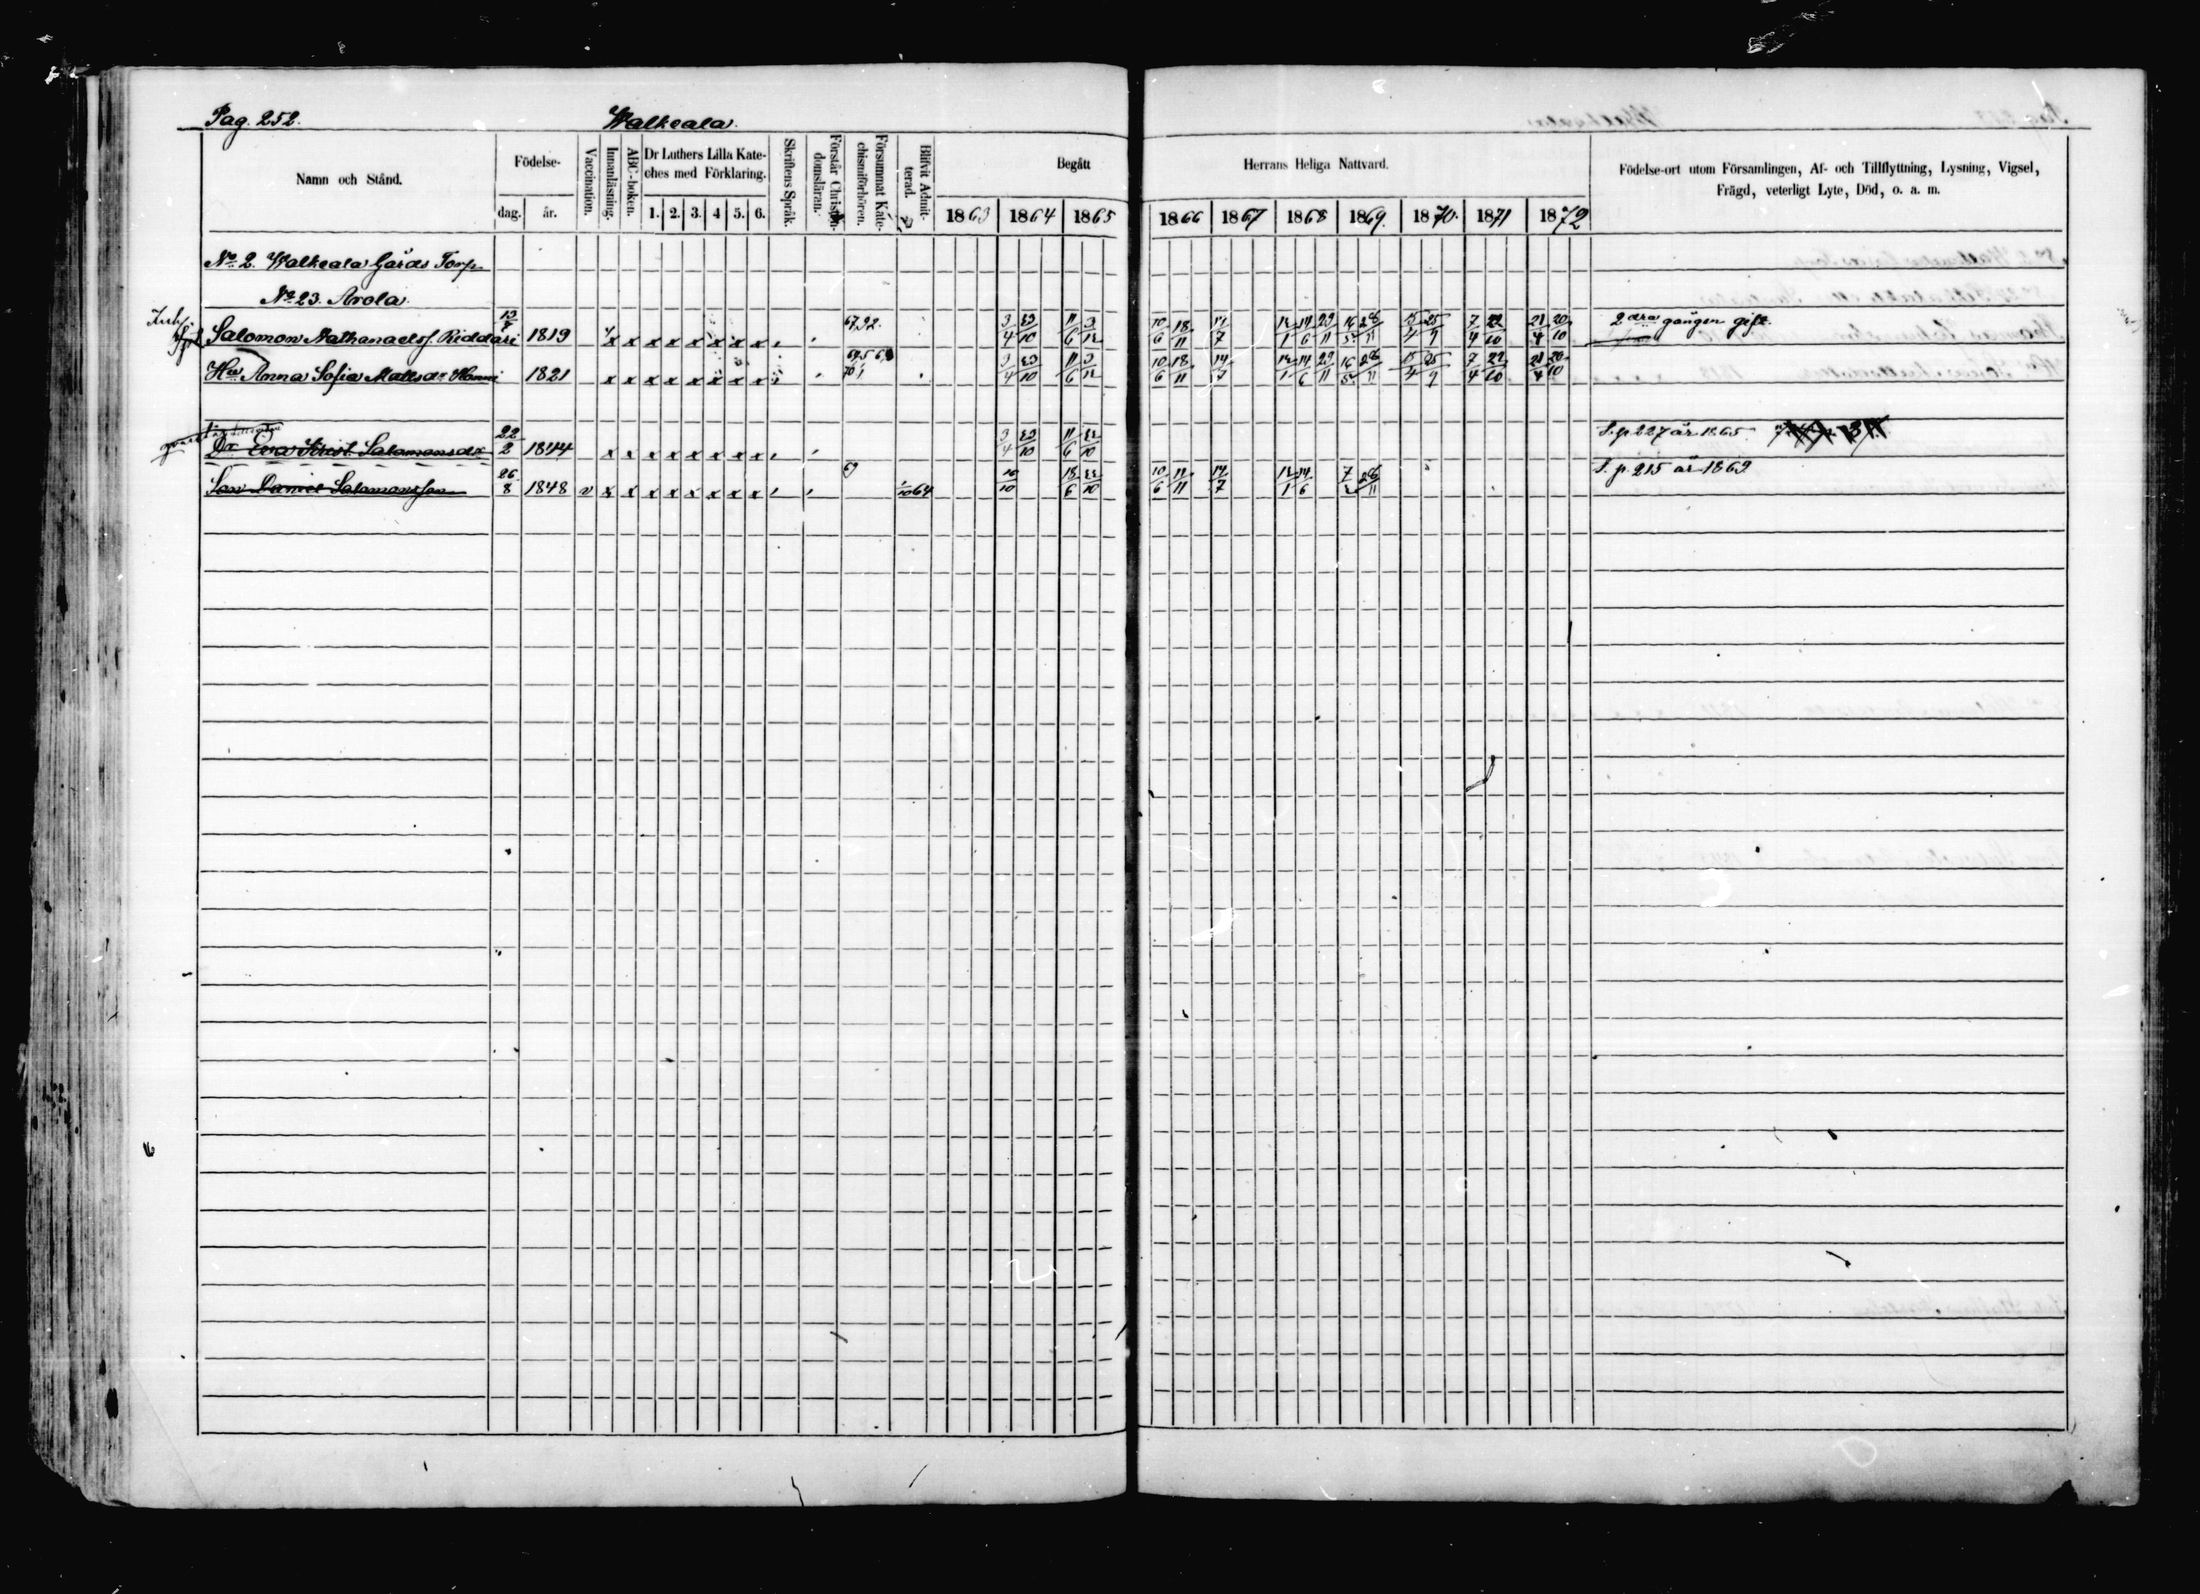 Pag. 252. Walkeala.
Namn och Stånd. Födelse- dag. år. Vaccination. Innanläsning. ABC-boken. Dr Luthers Lilla Kateches med Förklaring. 1. 2. 3. 4 5. 6. Skriftens Språk. Förstår Christendomsläran. Försummat Katechismiförhören. Blifvit Admitterad. Begått Herrans Heliga Nattvard. Födelse-ort utom Församlingen, Af- och Tillflyttning, Lysning, Vigsel, Frägd, veterligt Lyte, Död, o. a. m.
1863 1864 1865 1866 1867 1868 1869. 1870. 1871 1872
No 2. Walkeala Gårds Torp
No 23. Arola.
Salomon Nathanaelsf. Riddari 13/7 1819 x x x x x x x x 67, 3/4 23/10 11/6 3/12 10/6 18/11 14/7 12/1 14/6 29/11 16/5 28/11 15/4 25/9 7/4 22/10 21/4 20/10 2dra gången gift.
Hu Anna Sofia Mattsdr 1821 x x x x x x x x 3/4 23/10 11/6 3/12 10/6 18/11 14/7 12/1 14/6 29/11 16/5 28/11 15/4 25/9 7/4 22/10 21/4 20/10
Dr Eva Krist. Salomonsdr 22/2 1844 x x x x x x x x 3/4 23/10 11/6 S. p. 227 år 1865
Son Daniel Salomonsson 26/8 1848 v x x x x x x x x 69 1/10 64 18/6 10/6 11/11 14/7 12/1 14/6 28/11 S. p. 215 år 1869